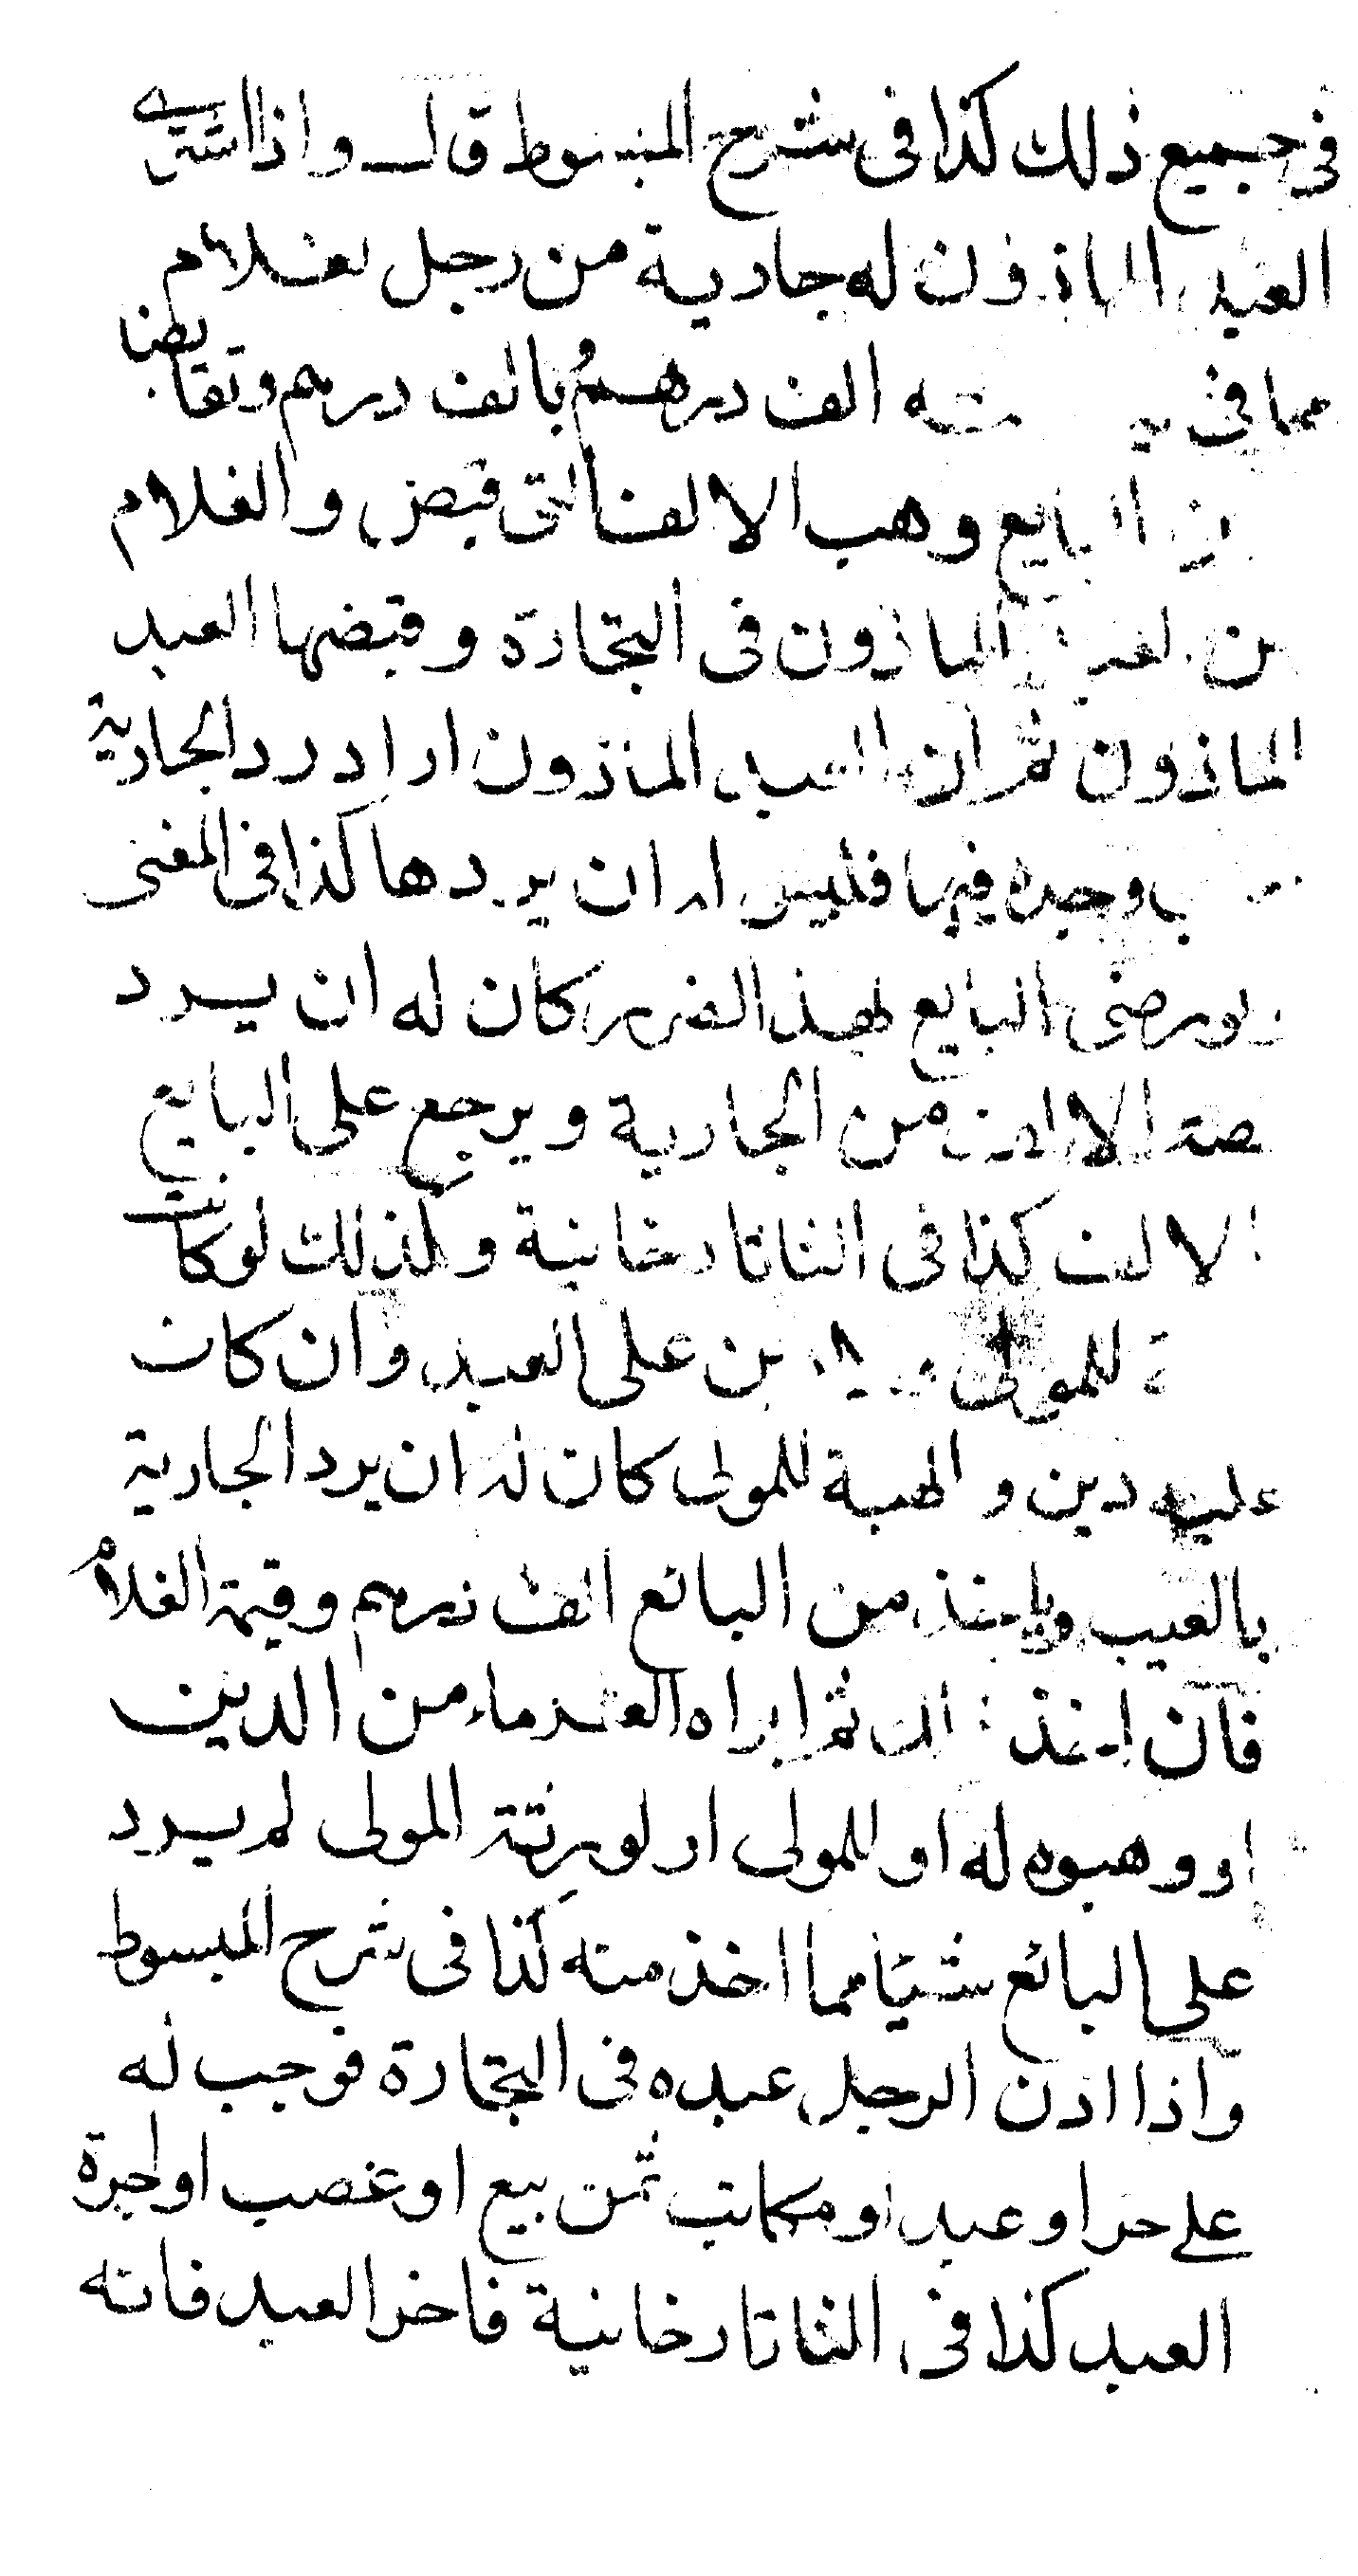 في جميع ذلك كذا في شرح المبسوط قال واذا اشترى
العبد الماذون له جارية من رجل بغلام
الف درهم وبالف درهم وتقابضا
البايع وهب الالف التي قبض والغلام
من العبد الماذون في التجارة وقبضها العبد
الماذون ثم ان العبد الماذون اراد رد الجارية
وجده فيها فليس له ان يردها كذا في المغنى
ولو رضى البايع بهذا الضرر كان له ان يرد
حصة الالف من الجارية ويرجع على البايع
الالف كذا في التاتارخانية وكذلك لو كانت
للمولى ولا دين على العبد وان كان
عليه دين والهبة للمولى كان له ان يرد الجارية
بالعيب وياخذ من البائع الف درهم وقيمة الغلام
فان اخذ ذلك ثم ابراه الغرماء من الدين
او وهبوه له او للمولى او لورثة المولى لم يرد
على البائع شيئا مما اخذ منه كذا في شرح المبسوط
واذا اذن الرجل عبده في التجارة فوجب له
على حر او عبد او مكاتب ثمن بيع او غصب او اجرة
العبد كذا في التاتارخانية فاخر العبد فانه